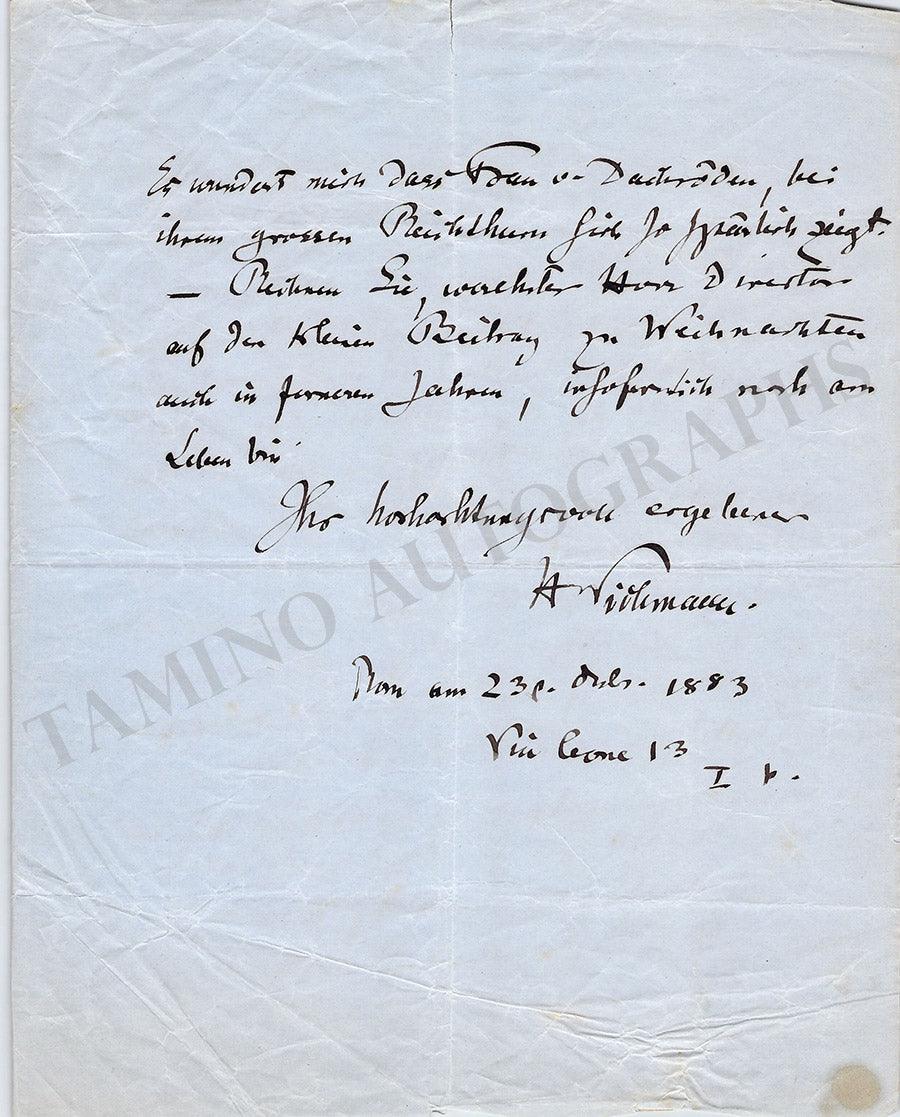 Es wundert mich dass Frau v. Dachröden, bei
ihrem grossen Reichthum sich so spärlich zeigt.
— Rechnen Sie, werthester Herr Director
auf den kleinen Beitrag zu Weihnachten
auch in ferneren Jahren, insofern ich noch am
Leben bin
Ihr hochachtungsvoll ergebener
H Wichmann.
Rom am 23 1883
Via Leone 13
I p.
TAMINO AUTOGRAPHS